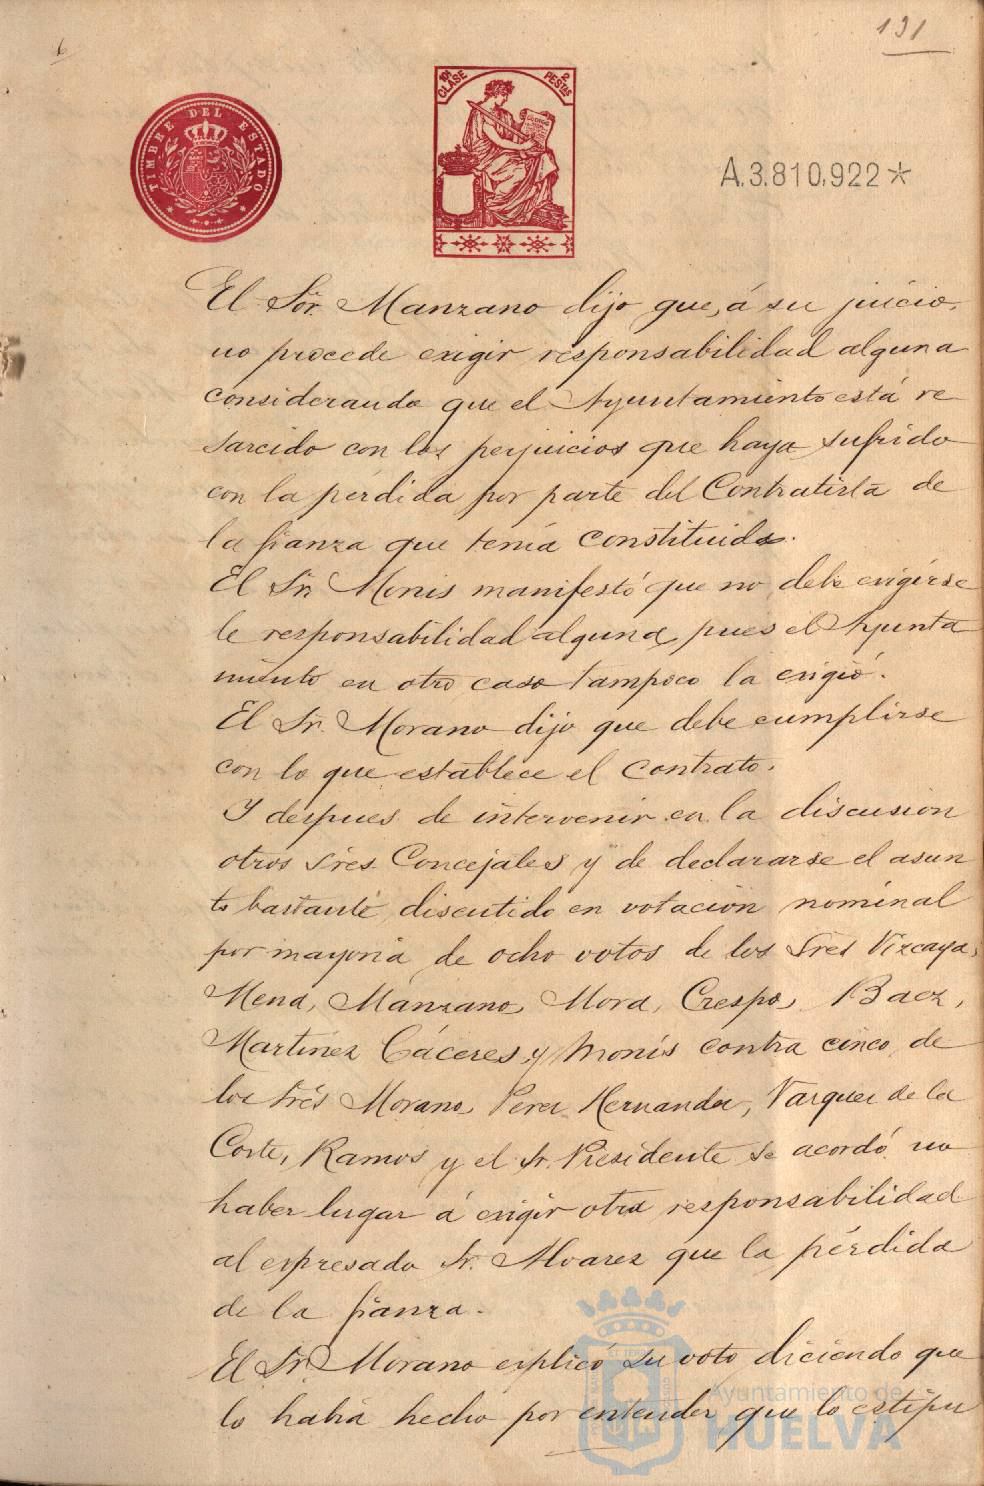 131
TIMBRE DEL ESTADO
10ª CLASE 2 PESTAS
A.3.810.922*
El Sor. Manzano dijo que, á su juicio,
no procede exigir responsabilidad alguna
considerando que el Ayuntamiento está re
sarcido con los perjuicios que haya sufrido
con la pérdida por parte del Contratista de
la fianza que tenia constituida.
El Sr. Monis manifestó que no debe exigirse
le responsabilidad alguna, pues el Ayunta
miento en otro caso tampoco la exigió.
El Sr. Morano dijo que debe cumplirse
con lo que establece el contrato.
Y despues de intervenir en la discusion
otros Sres. Concejales y de declararse el asun
to bastante discutido en votacion nominal
por mayoria de ocho votos de los Sres Vizcaya,
Mena, Manzano, Mora, Crespo, Baez,
Martinez Cáceres, y Monis contra cinco, de
los Srés Morano, Perez Hernandez, Vazquez de la
Corte, Ramos y el Sr. Presidente se acordó no
haber lugar á exigir otra responsabilidad
al expresado Sr. Alvarez que la pérdida
de la fianza.
El Sr. Morano explicó su voto diciendo que
lo habia hecho por entender que lo estipu
Ayuntamiento de
HUELVA